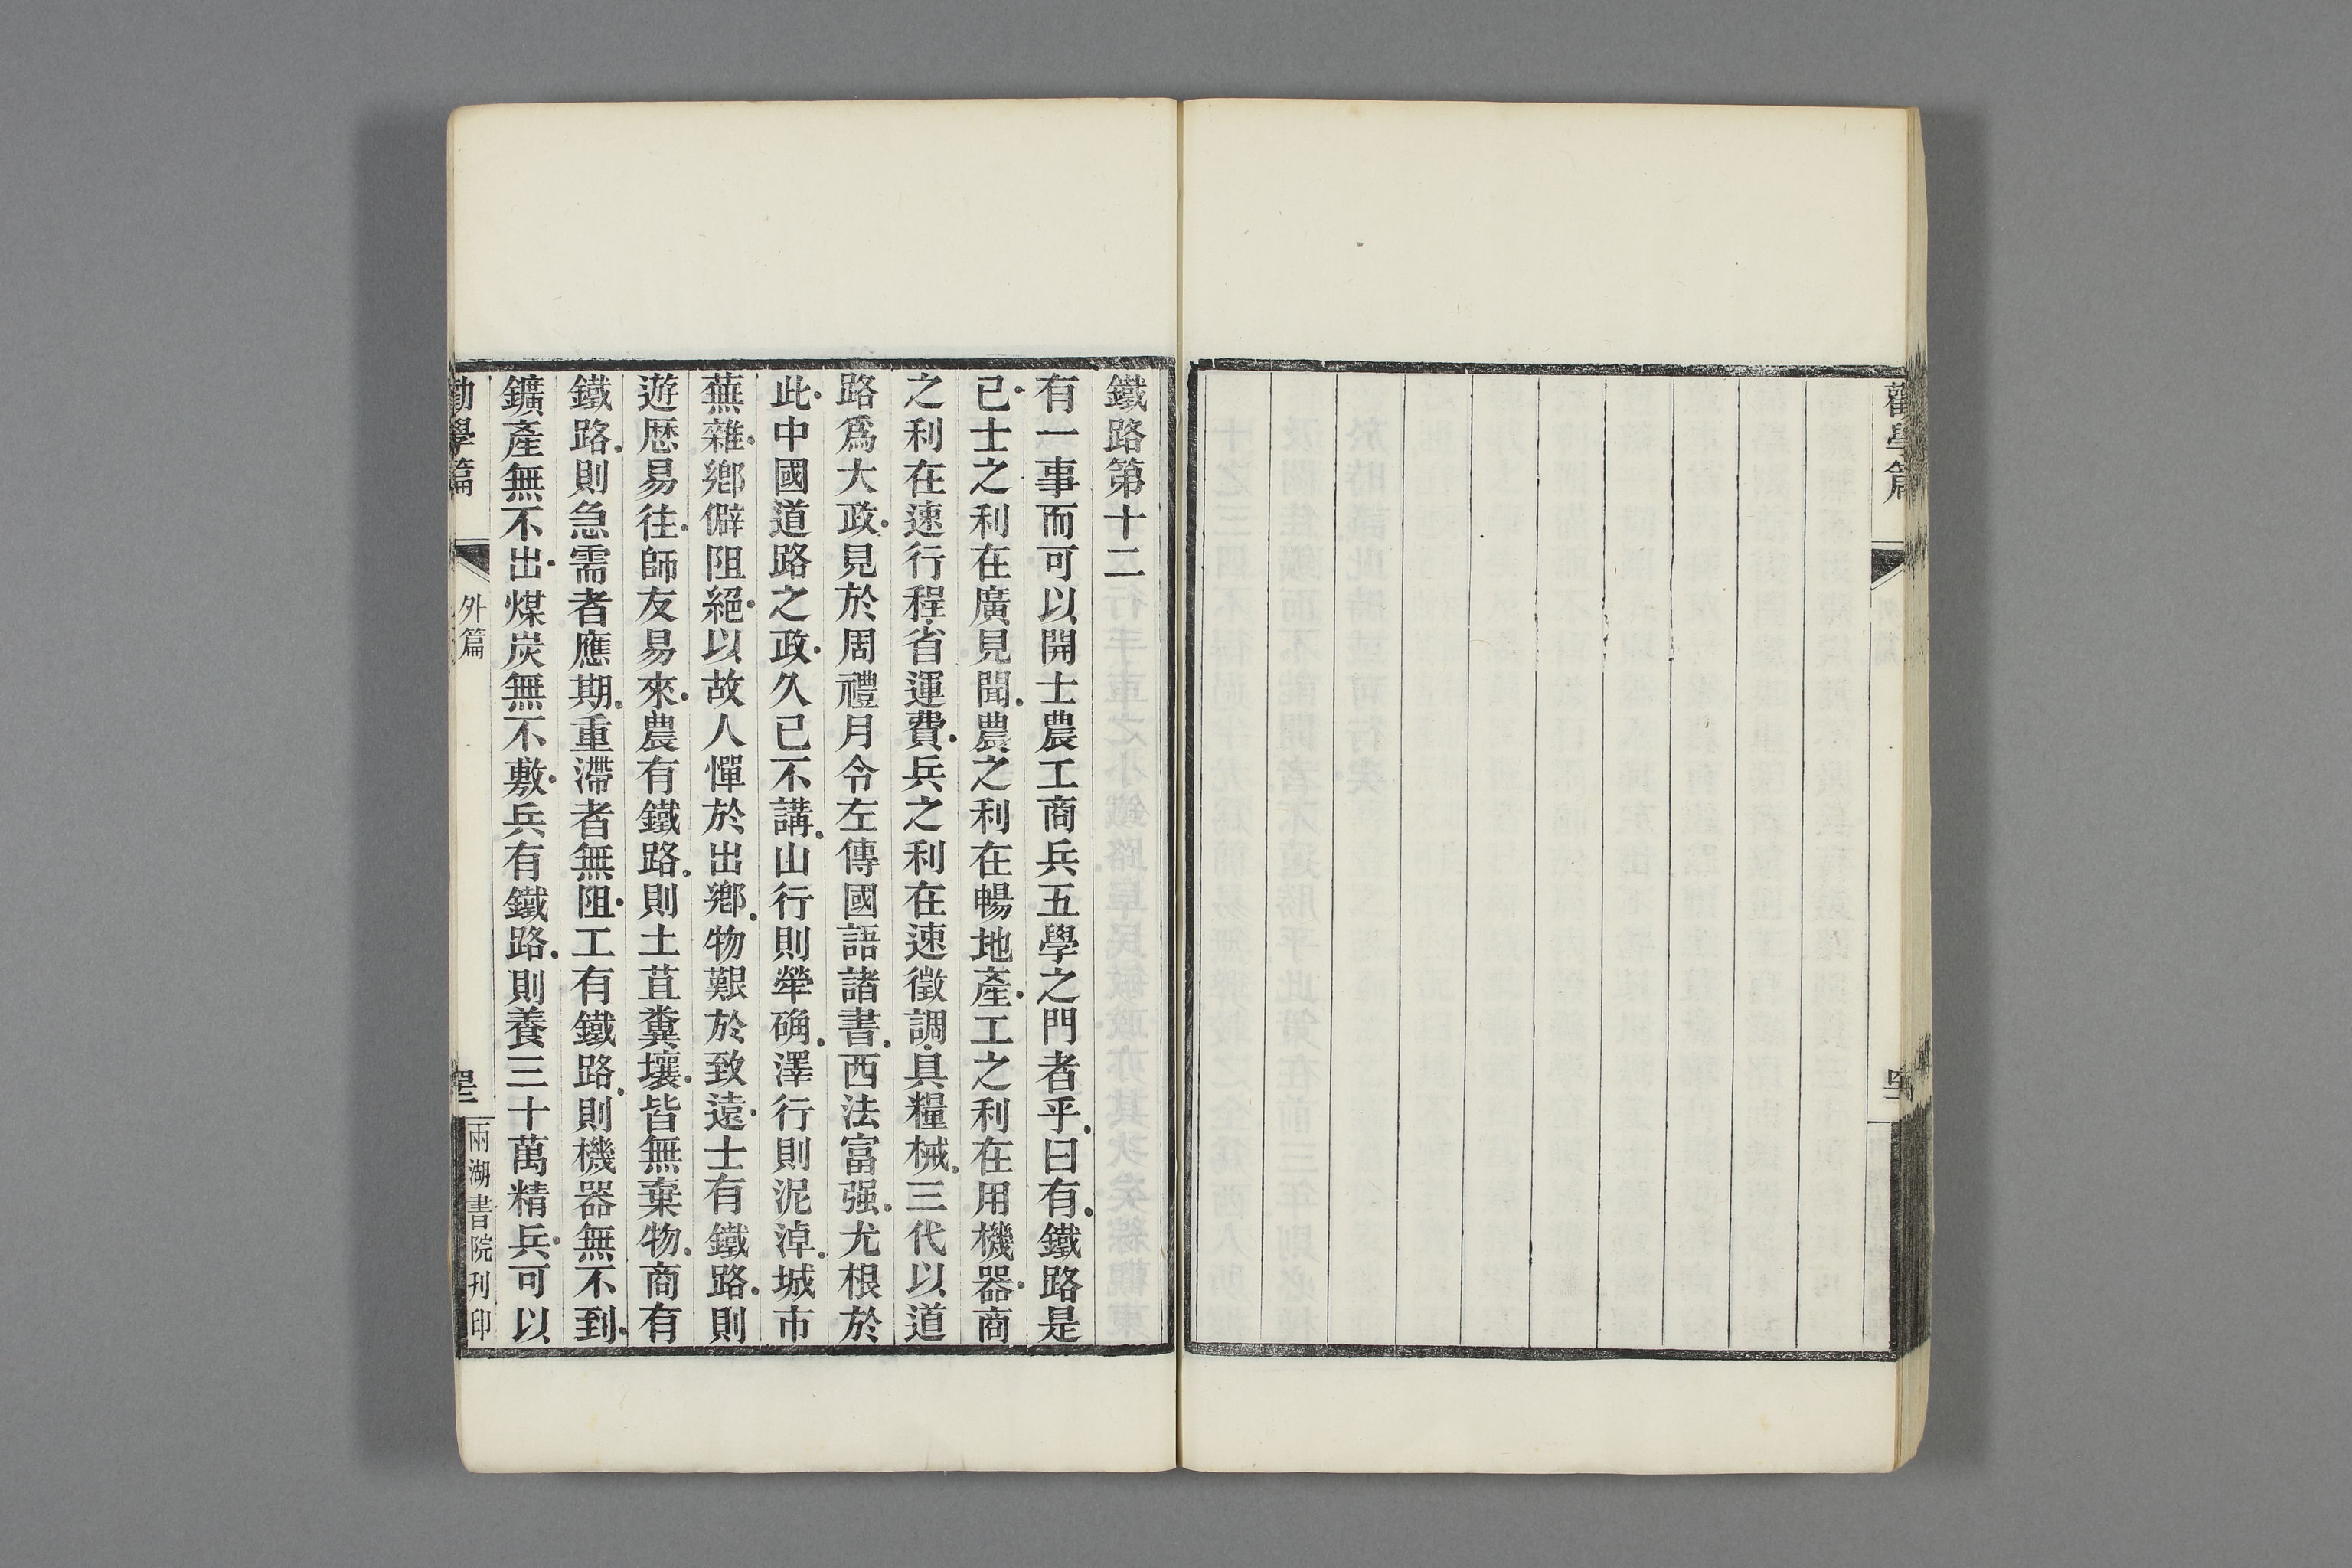 勸學篇
鐵路第十二
有一事而可以開士農工商兵五學之門者乎曰有鐵路是
已士之利在廣見聞農之利在暢地產工之利在用機器商
之利在速行程省運費兵之利在速徵調具糧械三代以道
路爲大政見於周禮月令左傳國語諸書西法富强尤根於
此中國道路之政久已不講山行則犖确澤行則泥淖城市
蕪雜鄉僻阻絕以故人憚於出鄉物艱於致遠士有鐵路則
遊歷易往師友易來農有鐵路則土苴糞壤皆無棄物商有
鐵路則急需者應期重滯者無阻工有鐵路則機器無不到
鑛產無不出煤炭無不敷兵有鐵路則養三十萬精兵可以
勸學篇 外篇 兩湖書院刊印